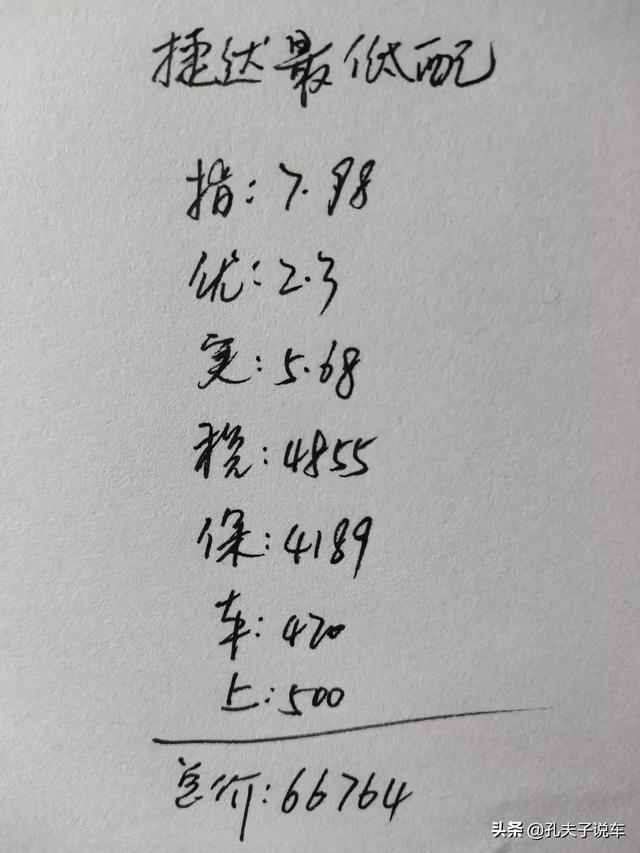 捷达最低配
指:7.98
优:2.3
实:5.68
税:4855
保:4189
车:420
上:500
总价:66764
头条@孔夫子说车